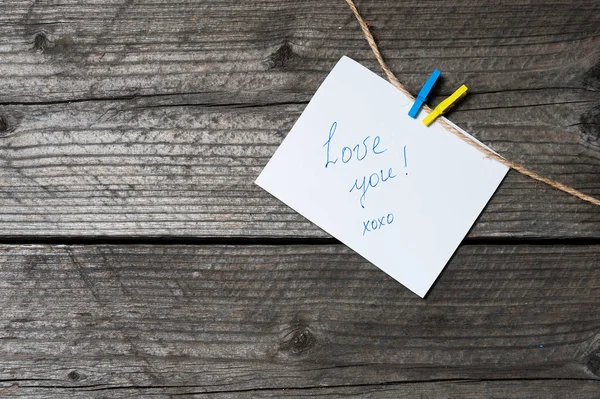 Love
you!
xoxo